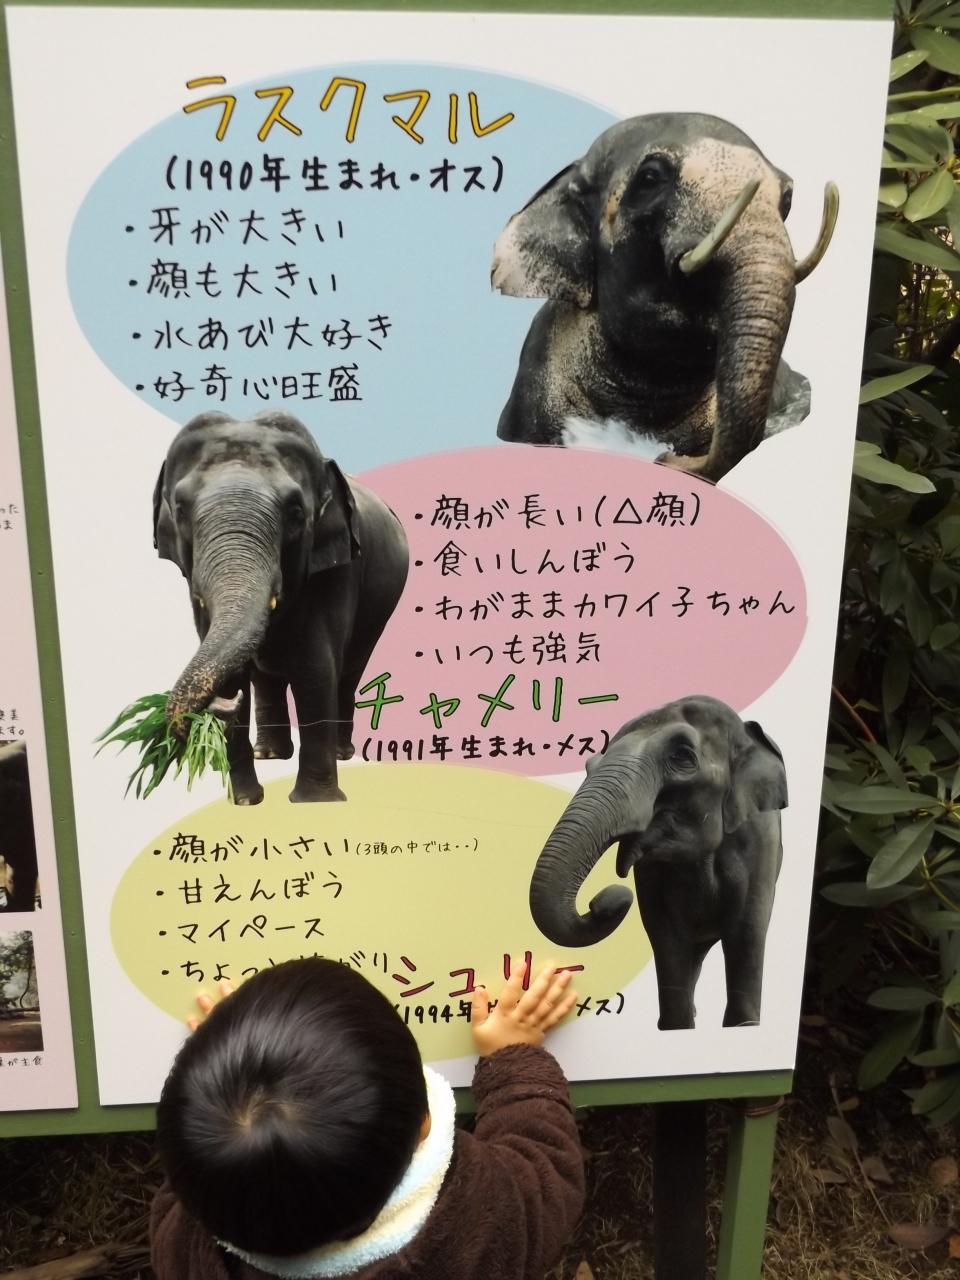 ラスクマル
(1990年生まれ・オス)
・牙が大きい
・顔も大きい
・水あび大好き
・好奇心旺盛
・顔が長い(△顔)
・食いしんぼう
・わがままカワイ子ちゃん
・いつも強気
チャメリー
(1991年生まれ・メス)
・顔が小さい(3頭の中では・・)
・甘えんぼう
・マイペース
・ちょっと
がり
シュリー
(1994年
メス)
った
ます。
が主食